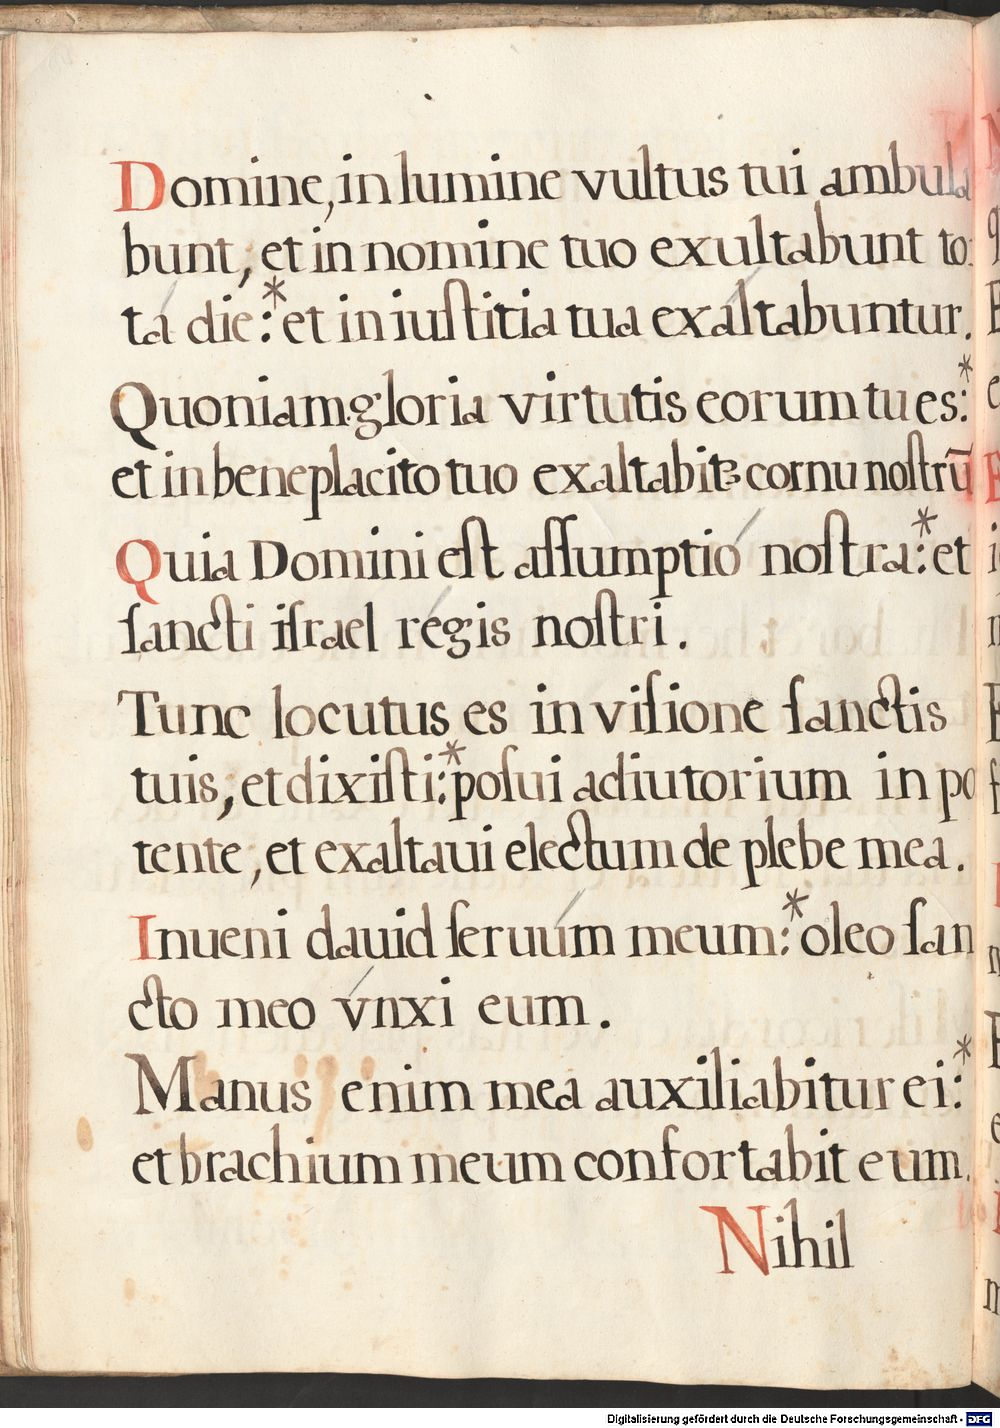 Domine, in lumine vultus tui ambula
bunt, et in nomine tuo exultabunt to
tá die:* et in iuſtitia tua exáltabuntur.
Quoniam gloria virtutis eorum tu es:*
et in beneplacito tuo exaltabitꝫ cornu noſtrū
Quia Domini eſt aſſumptió noſtra:* et
ſancti iſrael régis noſtri.
Tunc locutus es in viſione ſanctis
tuis, et dixiſti:* poſui adiutorium in po
tente, et exaltaui electum de plebe mea.
Inueni dauid ſeruúm meum:* oleo ſan
cto meo v́nxi eum.
Manus enim mea auxiliabitur ei:*
et brachium meum confortabit eum.
Nihil
Digitalisierung gefördert durch die Deutsche Forschungsgemeinschaft - DFG